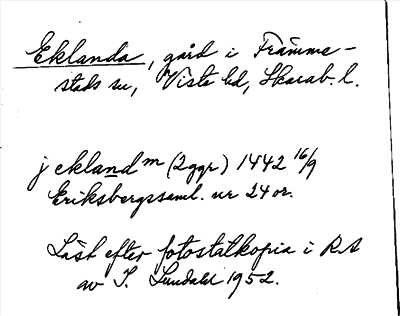 Eklanda, gård i Främme-
stads sn, Viste hd, Skarab. l.
j eklandm (2 ggr) 1442 16/9
Eriksbergssaml. nr 24 or.
Läst efter fotostatkopia i RA
av I. Lundahl 1952.